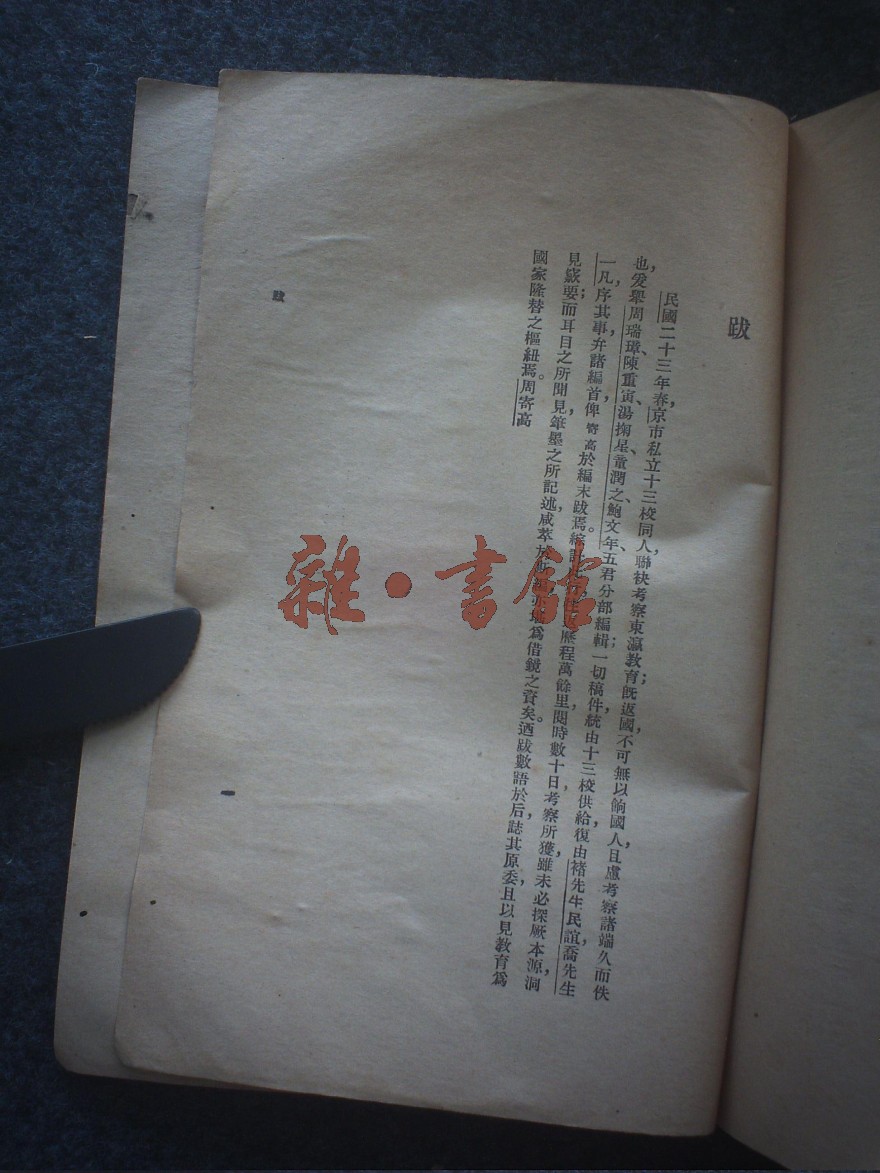 跋
民國二十三年春，京市私立十三校同人，聯袂考察東瀛教育；旣返國，不可無以餉國人，且慮考察諸端久而佚
也，爰舉周瑞璋、陳重寅、湯掬星、童潤之、鮑文年五君分部編輯；一切稿件，統由十三校供給，復由褚先生民誼，喬先生
一凡，序其事弁諸編首，俾寄高於編末跋焉。綜計歷程萬餘里，閱時數十日，考察所獲，雖未必探厥本源，洞
見竅要；而耳目之所聞見，筆墨之所記述，咸萃於爲借鏡之資矣。迺跋數語於后，誌其原委，且以見教育爲
國家隆替之樞紐焉。周寄高
跋
雜·書館